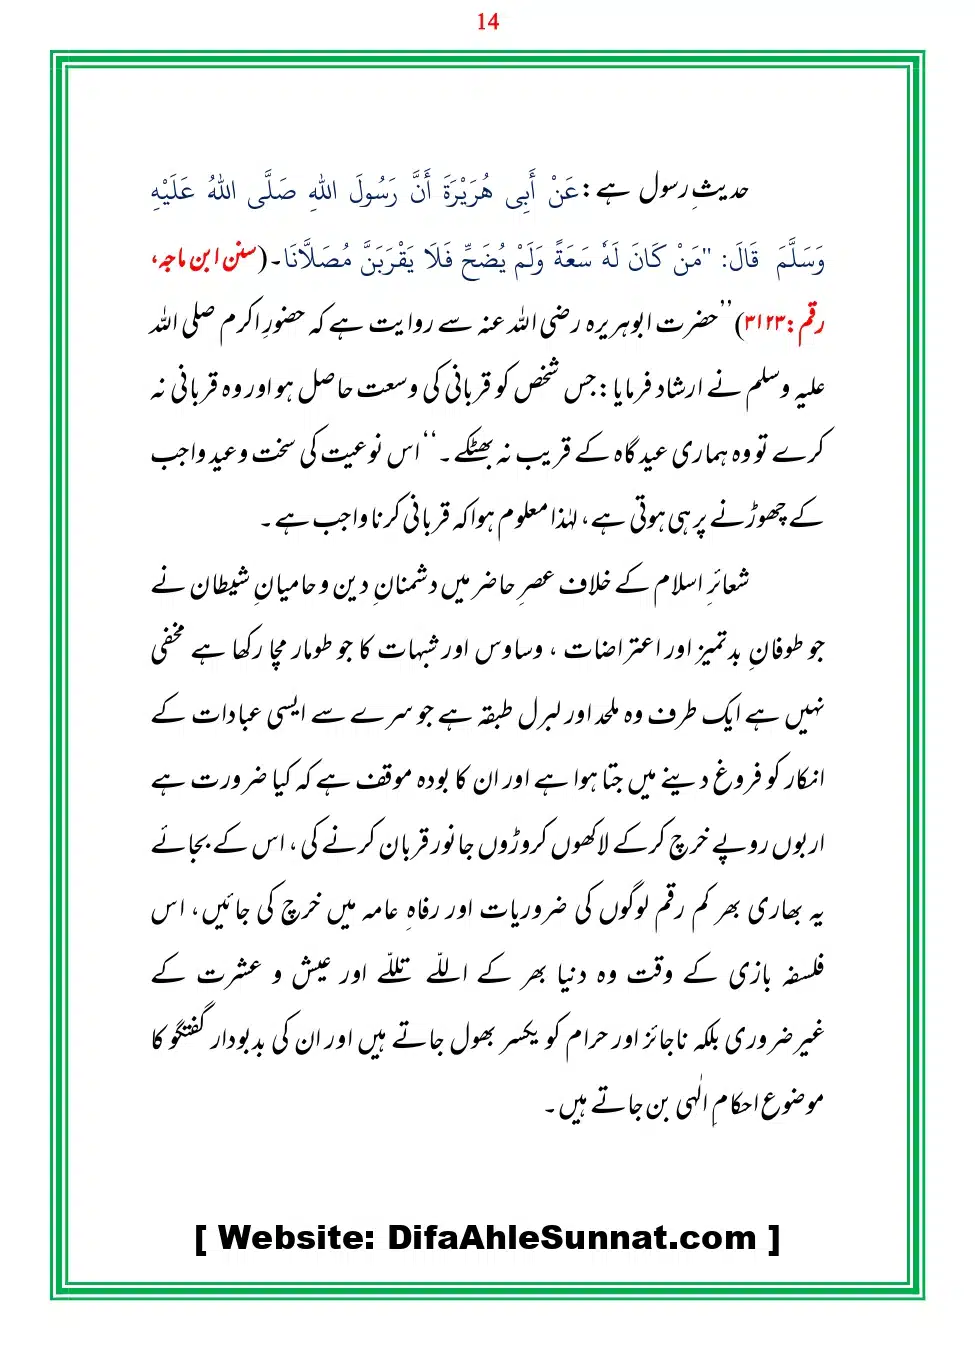 14
حدیثِ رسول ہے: عَنْ أَبِی هُرَیْرَةَ أَنَّ رَسُولَ اللهِ صَلَّی اللهُ عَلَیْهِ
وَسَلَّمَ قَالَ: "مَنْ کَانَ لَهٗ سَعَةً وَلَمْ یُضَحِّ فَلَا یَقْرَبَنَّ مُصَلَّانَا۔ (سنن ابن ماجہ،
رقم: ۳۱۲۳) ’’حضرت ابوہریرہ رضی اللہ عنہ سے روایت ہے کہ حضورِ اکرم صلی اللہ
علیہ وسلم نے ارشاد فرمایا: جس شخص کو قربانی کی وسعت حاصل ہو اور وہ قربانی نہ
کرے تو وہ ہماری عید گاہ کے قریب نہ بھٹکے۔‘‘ اس نوعیت کی سخت وعید واجب
کے چھوڑنے پر ہی ہوتی ہے، لہٰذا معلوم ہوا کہ قربانی کرنا واجب ہے۔
شعائرِ اسلام کے خلاف عصرِ حاضر میں دشمنانِ دین و حامیانِ شیطان نے
جو طوفانِ بدتمیز اور اعتراضات ، وساوس اور شبہات کا جو طومار مچا رکھا ہے مخفی
نہیں ہے ایک طرف وہ ملحد اور لبرل طبقہ ہے جو سرے سے ایسی عبادات کے
انکار کو فروغ دینے میں جتا ہوا ہے اور ان کا بودہ موقف ہے کہ کیا ضرورت ہے
اربوں روپے خرچ کرکے لاکھوں کروڑوں جانور قربان کرنے کی، اس کے بجائے
یہ بھاری بھر کم رقم لوگوں کی ضروریات اور رفاہِ عامہ میں خرچ کی جائیں، اس
فلسفہ بازی کے وقت وہ دنیا بھر کے اللّے تللّے اور عیش و عشرت کے
غیر ضروری بلکہ ناجائز اور حرام کو یکسر بھول جاتے ہیں اور ان کی بدبودار گفتگو کا
موضوع احکامِ الٰہی بن جاتے ہیں۔
[ Website: DifaAhleSunnat.com ]